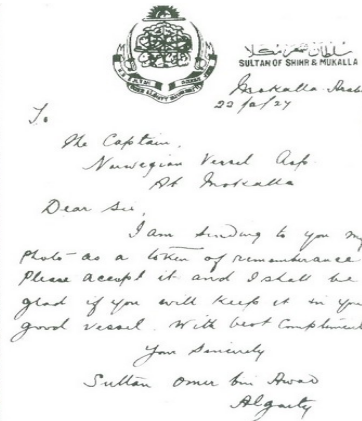 سلطان شحر مكلا
SULTAN OF SHIHR & MUKALLA
Mokalla Arabi
22/2/27
To
The Captain,
Norwegian Vessel Asp.
At Mokalla
Dear Sir,
I am sending to you my
photo as a token of remembrance
Please accept it and I shall be
glad if you will keep it in you
good vessel. With best Compliment
Your Sincerely
Sultan Omer bin Awad
Algaity